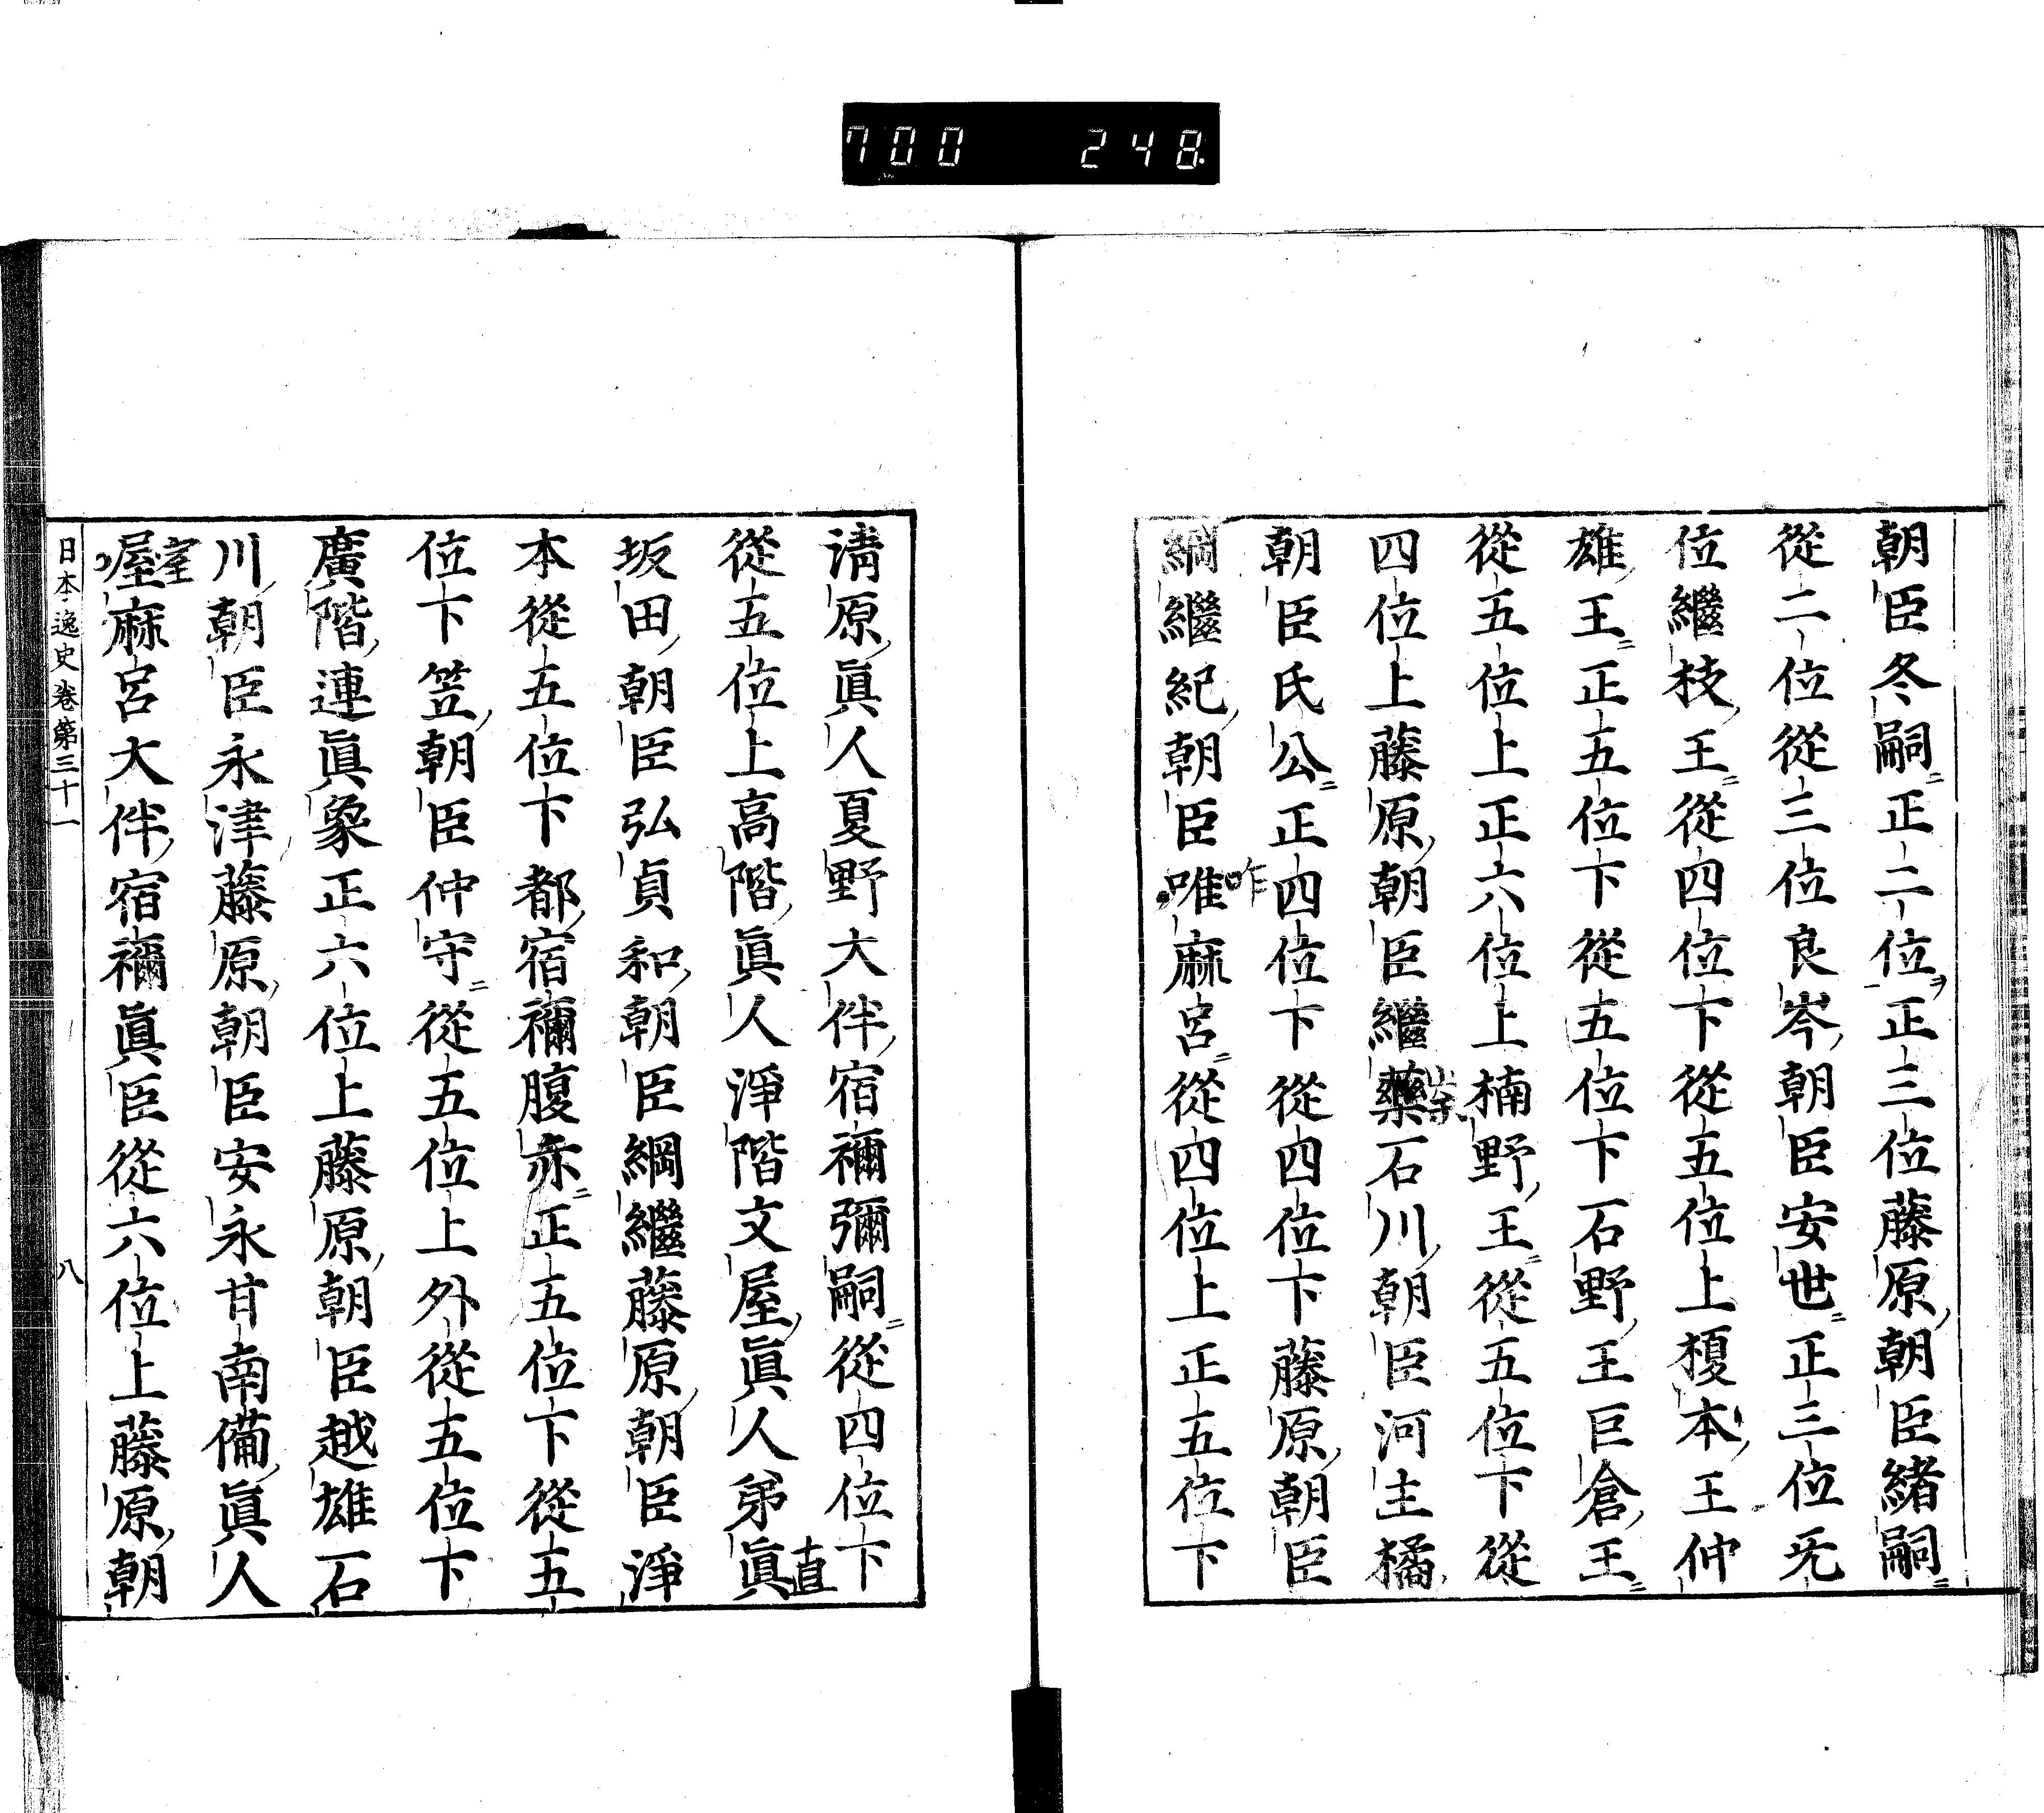 700 248
朝臣冬嗣正二位正三位藤原朝臣緒嗣
從二位從三位良岑朝臣安世正三位无
位繼枝王從四位下從五位上榎本王仲
雄王正五位下從五位下石野王巨倉王
從五位上正六位上楠野王從五位下從
四位上藤原朝臣繼藥石川朝臣河主橘
朝臣氏公正四位下從四位下藤原朝臣
咋
綱繼紀朝臣唯麻呂從四位上正五位下
清原眞人夏野大伴宿禰彌嗣從四位下
直
從五位上高階眞人淨階文屋眞人弟眞
坂田朝臣弘貞和朝臣綱繼藤原朝臣淨
本從五位下都宿禰腹赤正五位下從五
位下笠朝臣仲守從五位上外從五位下
廣階連眞象正六位上藤原朝臣越雄石
川朝臣永津藤原朝臣安永甘南備眞人
室
屋麻呂大伴宿禰眞臣從六位上藤原朝
日本逸史卷第三十一 八